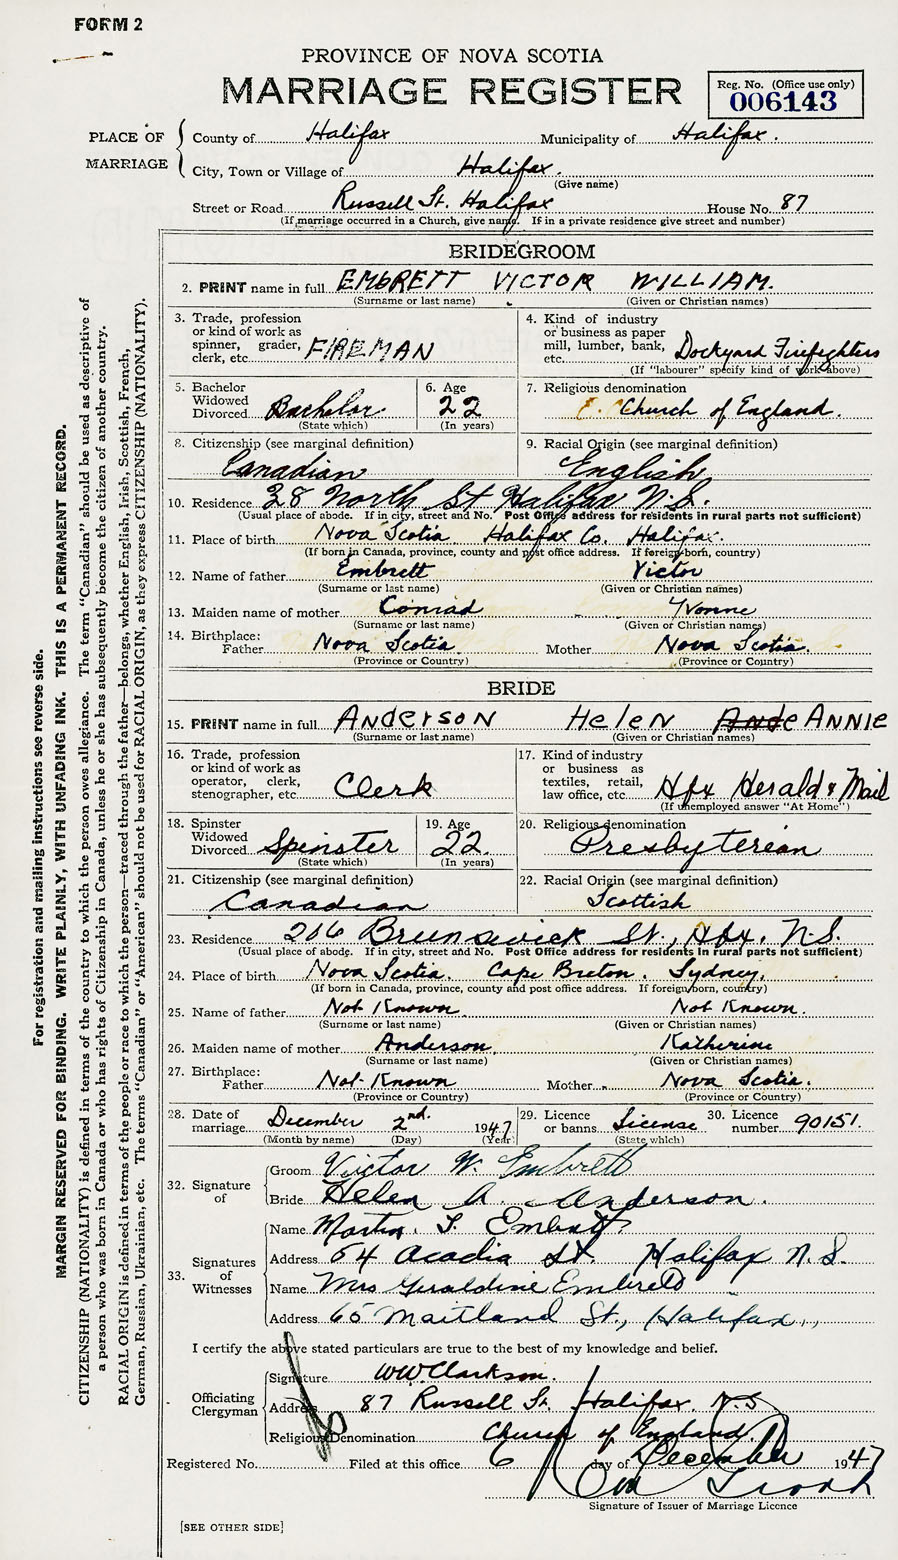 FORM 2
PROVINCE OF NOVA SCOTIA
MARRIAGE REGISTER
Reg. No. (Office use only)
006143
PLACE OF MARRIAGE
County of Halifax Municipality of Halifax.
City, Town or Village of Halifax.
(Give name)
Street or Road Russell St. Halifax House No. 87
(If marriage occurred in a Church, give name. If in a private residence give street and number)
BRIDEGROOM
2. PRINT name in full EMBRETT VICTOR WILLIAM.
(Surname or last name) (Given or Christian names)
3. Trade, profession
or kind of work as
spinner, grader,
clerk, etc. FIREMAN
4. Kind of industry
or business as paper
mill, lumber, bank,
etc. Dockyard Firefighters
(If "labourer" specify kind of work above)
5. Bachelor
Widowed
Divorced Bachelor
(State which)
6. Age
22
(In years)
7. Religious denomination
Church of England.
8. Citizenship (see marginal definition)
Canadian
9. Racial Origin (see marginal definition)
English
10. Residence 38 North St Halifax N.S.
(Usual place of abode. If in city, street and No. Post Office address for residents in rural parts not sufficient)
11. Place of birth Nova Scotia Halifax Co. Halifax.
(If born in Canada, province, county and post office address. If foreign-born, country)
12. Name of father Embrett Victor
(Surname or last name) (Given or Christian names)
13. Maiden name of mother Conrad Yvonne
(Surname or last name) (Given or Christian names)
14. Birthplace:
Father Nova Scotia. Mother Nova Scotia.
(Province or Country) (Province or Country)
BRIDE
15. PRINT name in full ANDERSON HELEN ANNIE
(Surname or last name) (Given or Christian names)
16. Trade, profession
or kind of work as
operator, clerk,
stenographer, etc. Clerk
17. Kind of industry
or business as
textiles, retail,
law office, etc. Hfx Herald & Mail
(If unemployed answer "At Home")
18. Spinster
Widowed
Divorced Spinster
(State which)
19. Age
22.
(In years)
20. Religious denomination
Presbyterian
21. Citizenship (see marginal definition)
Canadian
22. Racial Origin (see marginal definition)
Scottish
23. Residence 206 Brunswick St., Hfx. N.S.
(Usual place of abode. If in city, street and No. Post Office address for residents in rural parts not sufficient)
24. Place of birth Nova Scotia. Cape Breton. Sydney.
(If born in Canada, province, county and post office address. If foreign-born, country)
25. Name of father Not Known Not Known.
(Surname or last name) (Given or Christian names)
26. Maiden name of mother Anderson Katherine
(Surname or last name) (Given or Christian names)
27. Birthplace:
Father Not Known Mother Nova Scotia.
(Province or Country) (Province or Country)
28. Date of
marriage December 2nd. 1947
(Month by name) (Day) (Year)
29. Licence
or banns License
(State which)
30. Licence
number 90151.
32. Signature of
Groom Victor W. Embrett
Bride Helen A. Anderson.
33. Signatures of Witnesses
Name Martin. F. Embrett
Address 64 Acadia St. Halifax N.S.
Name Mrs Geraldine Embrett
Address 65 Maitland St., Halifax.,
I certify the above stated particulars are true to the best of my knowledge and belief.
Officiating Clergyman
Signature WW Clarkson.
Address 87 Russell St. Halifax. N.S
Religious Denomination Church of England.
Registered No. Filed at this office 6 day of December 1947
Signature of Issuer of Marriage Licence
[SEE OTHER SIDE]
For registration and mailing instructions see reverse side.
MARGIN RESERVED FOR BINDING. WRITE PLAINLY, WITH UNFADING INK. THIS IS A PERMANENT RECORD.
CITIZENSHIP (NATIONALITY) is defined in terms of the country to which the person owes allegiance. The term "Canadian" should be used as descriptive of
a person who was born in Canada or who has rights of Citizenship in Canada, unless he or she has subsequently become the citizen of another country.
RACIAL ORIGIN is defined in terms of the people or race to which the person—traced through the father—belongs, whether English, Irish, Scottish, French,
German, Russian, Ukrainian, etc. The terms "Canadian" or "American" should not be used for RACIAL ORIGIN, as they express CITIZENSHIP (NATIONALITY).